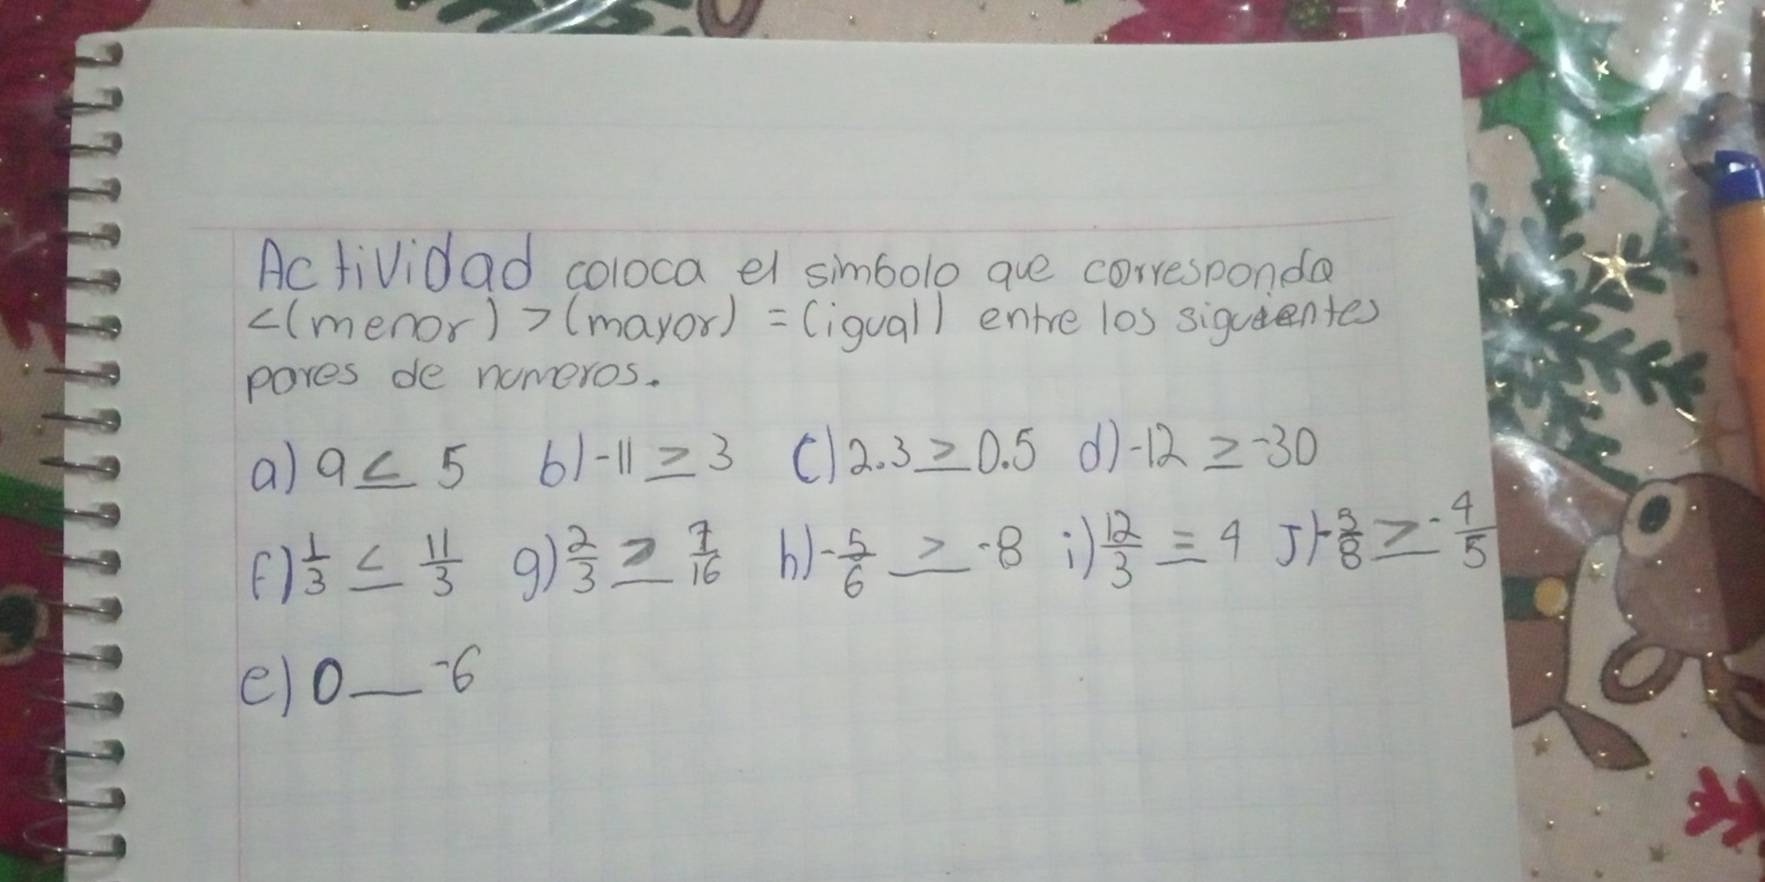 Actividad coloca el simbolo que corresponda
<(menor) >(mayor) =(igual) entre los siguientes
pares de numeros.
a) 9 < 5 b) -11 > 3 c) 2.3 > 0.5 d) -12 > -30
f) 1/3 < 11/3 g) 2/3 > 7/16 h) -5/6 > -8 i) 12/3 = 4 J) -3/8 > -4/5
e) 0 __ -6